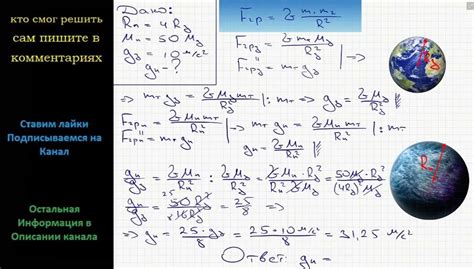 кто смог решить
сам пишите в
комментариях
Ставим лайки
Подписываемся на
Канал
Остальная
Информация в
Описании канала
Дано:
Rп = 4 Rз
Mп = 50 Mз
gз = 10 м/с²
gп - ?
Fгр = G m₁ m₂ / R²
Fгрз = G mт Mз / Rз²
Fгрз = mт gз
=> mт gз = G Mз mт / Rз² | : mт => gз = G Mз / Rз²
Fгрп = G Mп mт / Rп²
Fгрп = mт gп
=> mт gп = G Mп mт / Rп² | : mт
gп = G Mп / Rп²
gп / gз = G Mп / Rп² : G Mз / Rз² = G Mп · Rз² / Rп² · G Mз = 50 Mз · Rз² / (4Rз)² Mз
gп / gз = 50 Rз² / 16 Rз² = 25 / 8 =>
25
8
=> gп = 25 · gз / 8 = 25 · 10 м/с² / 8 = 31,25 м/с²
Ответ: gп =
Rз
Rп